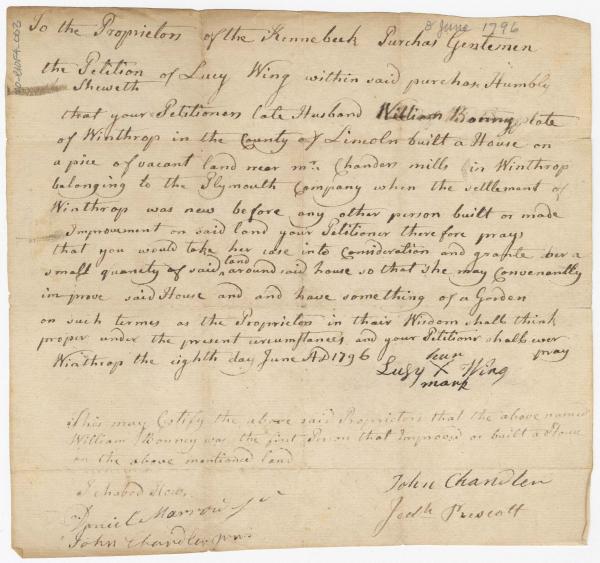 8 June 1796
To the Proprietors of the Kennebeck Purchas Gentelmen
the Petition of Lucy Wing within said purchas Humbly
Sheweth
that your Petitioners late Husband William Bonny late
of Winthrop in the County of Lincoln built a House on
a pice of vacant land near mr. Chanders mills in Winthrop
belonging to the Plymouth Company when the settlement of
Winthrop was new before any other person built or made
Improvement on said land your Petitioner therefore prays
that you would take her case into Consideration and grante her a
small quanety of said land around said house so that she may Convenantly
improve said House and and have something of a Gorden
on such termes as the Proprietors in thair Wisdom shall think
proper under the present circumstances and your Petitionr shall ever
pray
Winthrop the eighth day June AD 1796
her
Lusy X Wing
mark
This may Certify the above said Proprietors that the above named
William Bonney was the first Person that Improved or built a House
on the above mentioned land
John Chandler
Ichabod How
Jedh Prescott
Daniel Marrow
John Chandler junr.